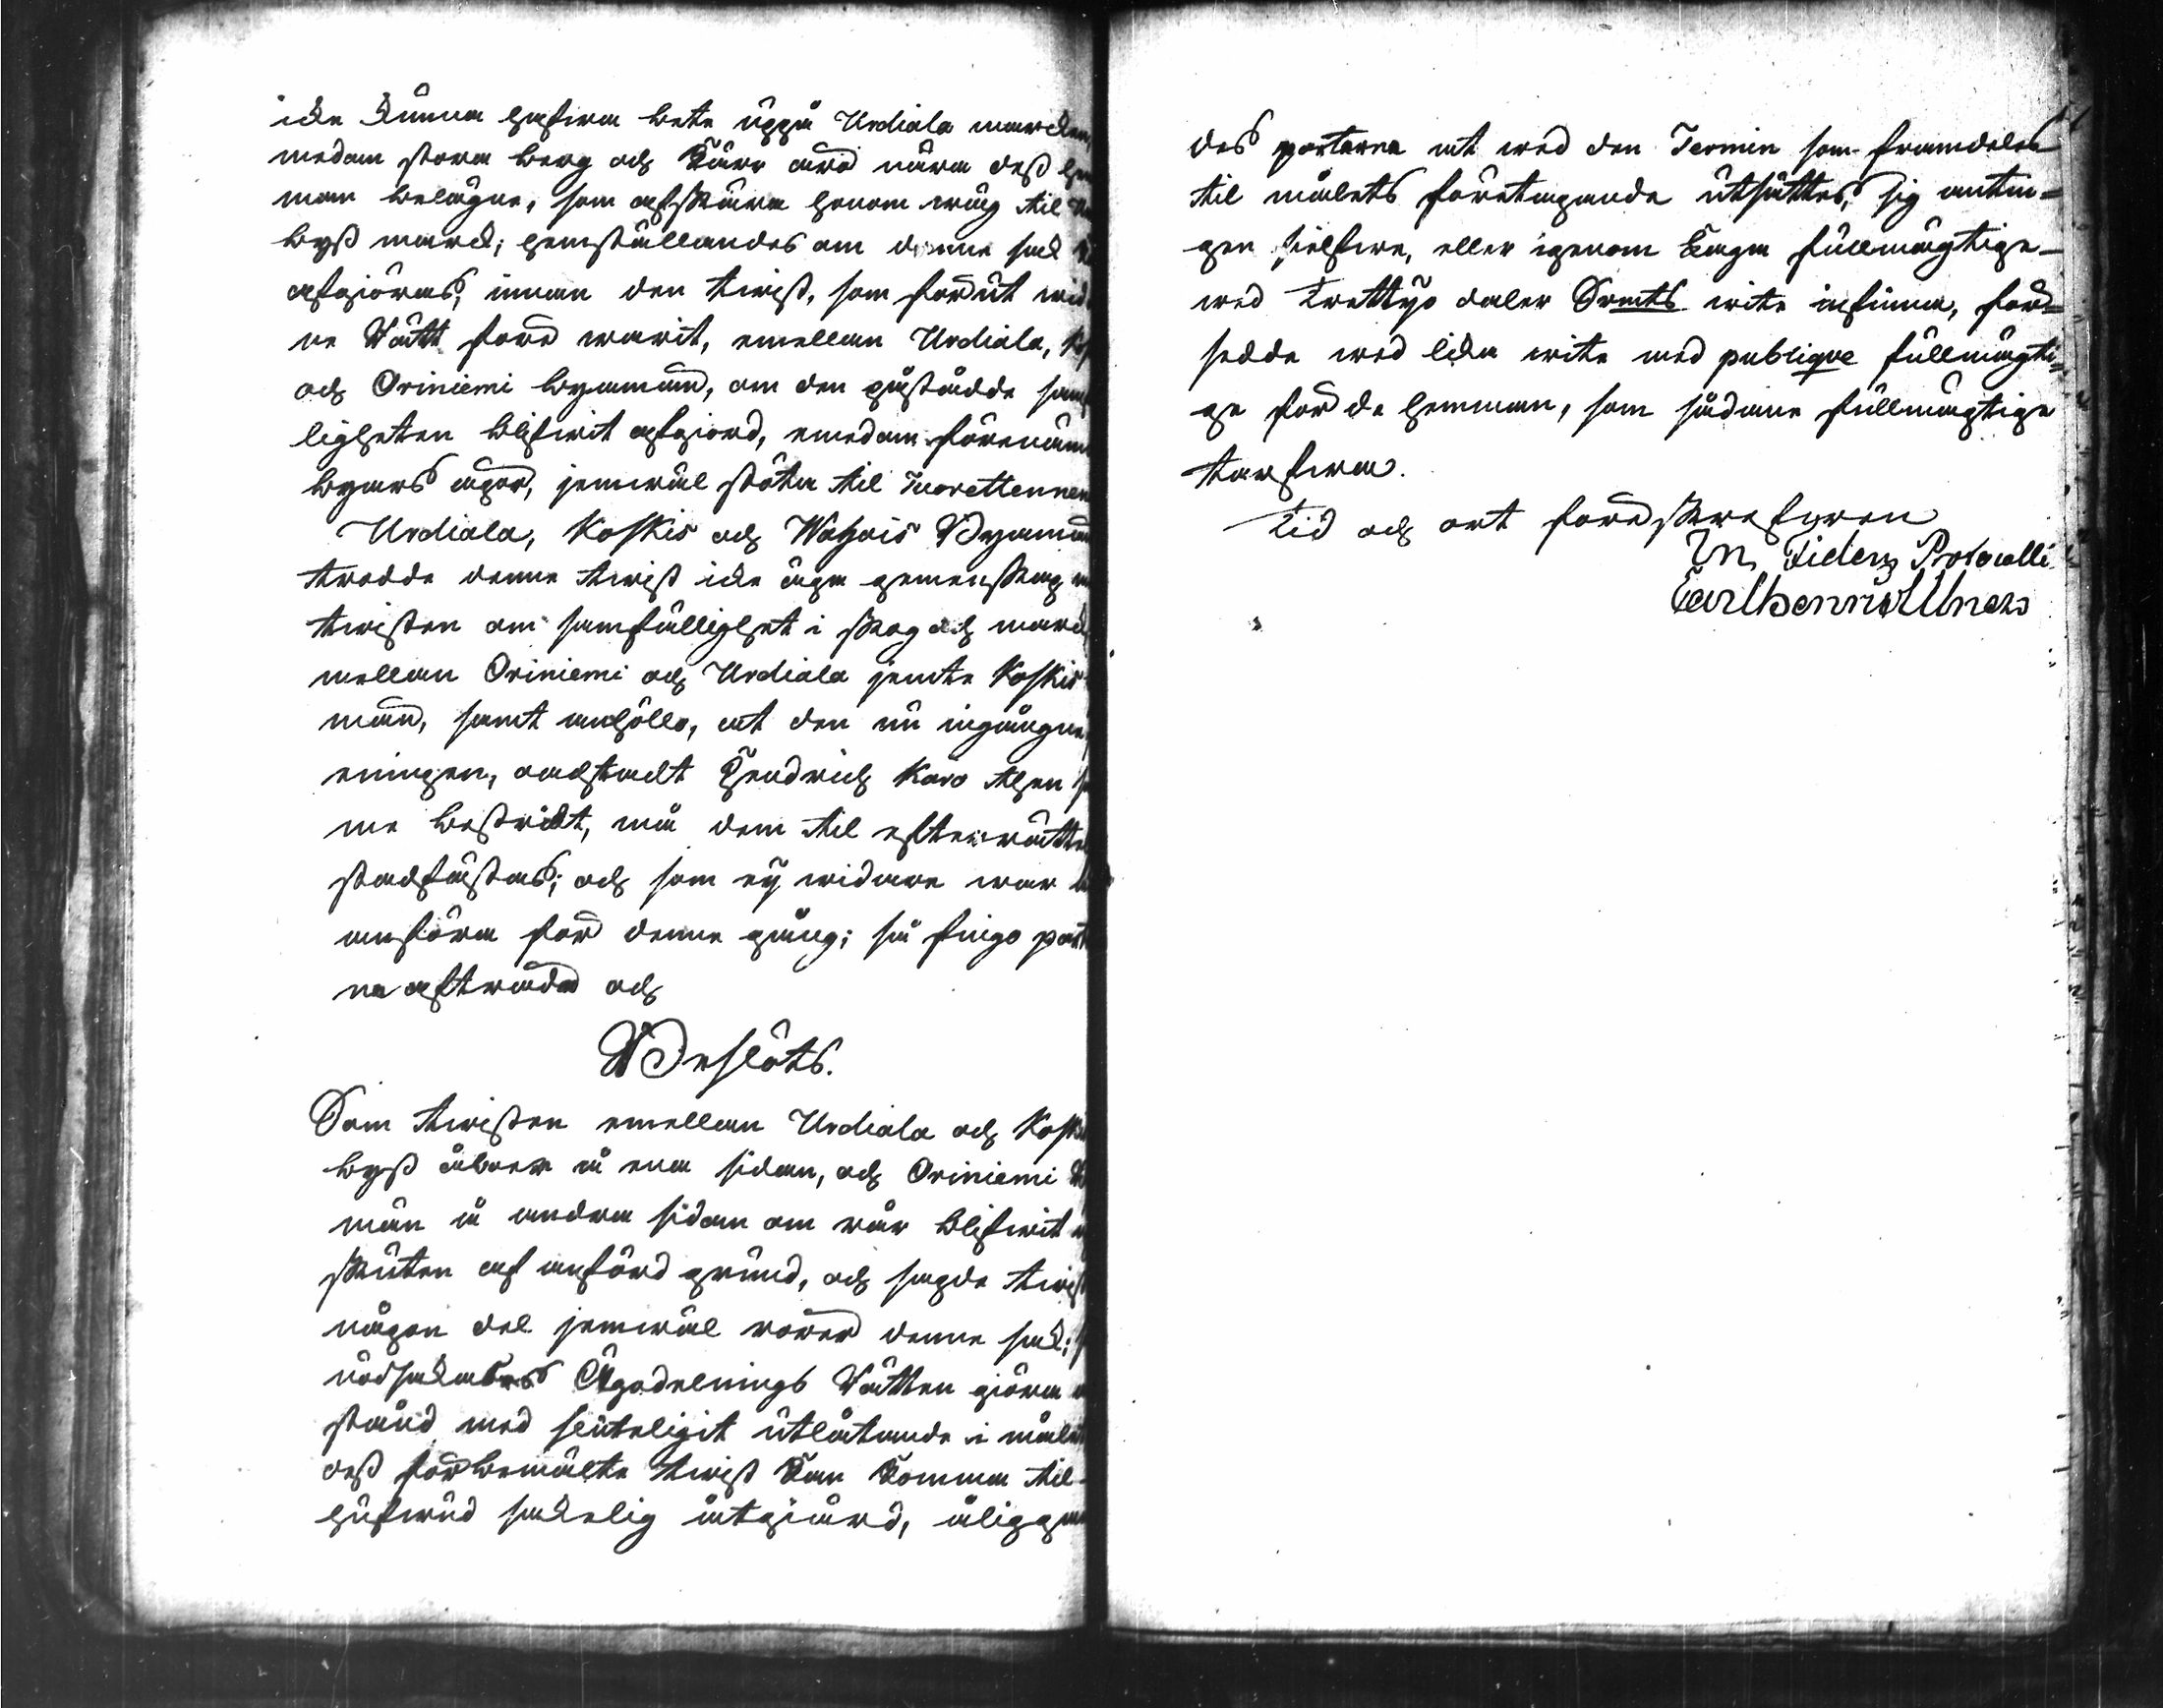 icke kunna hafwa bete uppå Urdiala marcken
medan stora berg och kärr äro nära dess
man belägne, som afskära henom wäg til
byss marck; hemställandes om denne sak
afgiöras, innan den twist, som förut wid
ne Rätt före warit, emellan Urdiala,
och Oriniemi byamän, om den påstådde sam
ligheten blifwit afgiord, emedan förenäm
byars ägor, jemwäl stöta til Tuorettennen
Urdiala, Koskis och Wahois Byamän
trodde denne twist icke äga gemenskap
twisten om samfällighet i skog och marck
mellan Oriniemi och Urdiala jemte Koskis
män, samt anhöllo, at den nu ingångne
eningen, oachtadt Hendrich Kåro then
me bestridt, må dem til efterrättel
stadfästas; och som ey widare war
anföra för denne gång; så fingo part
na afträda och
Beslöts.
Som twisten emellan Urdiala och Koskis
byss åboer å ena sidan, och Oriniemi
män å andra sidan om rår blifwit
skuten af anförd grund, och sagde twist
någon del jemwäl rörer denne sak;
nödsakades Ägodelnings Rätten giöra
stånd med sluteligit utlåtande i målet
dess förbemälte twist kan komma til
hufwud sakelig åtgiärd, åliggan
des parterna at wid den Termin som framdeles
til målets företagande utsättes, sig antin-
gen sielfwe, eller igenom laga fullmägtige
wid trettijo daler Smts wite infinna, för-
sedde wid lika wite med publique fullmägti-
ge för de hemman, som sådane fullmägtige
tarfwa.
Tid och ort förr skrefwen
In Fidem Protocolli
Carl henric Ulners